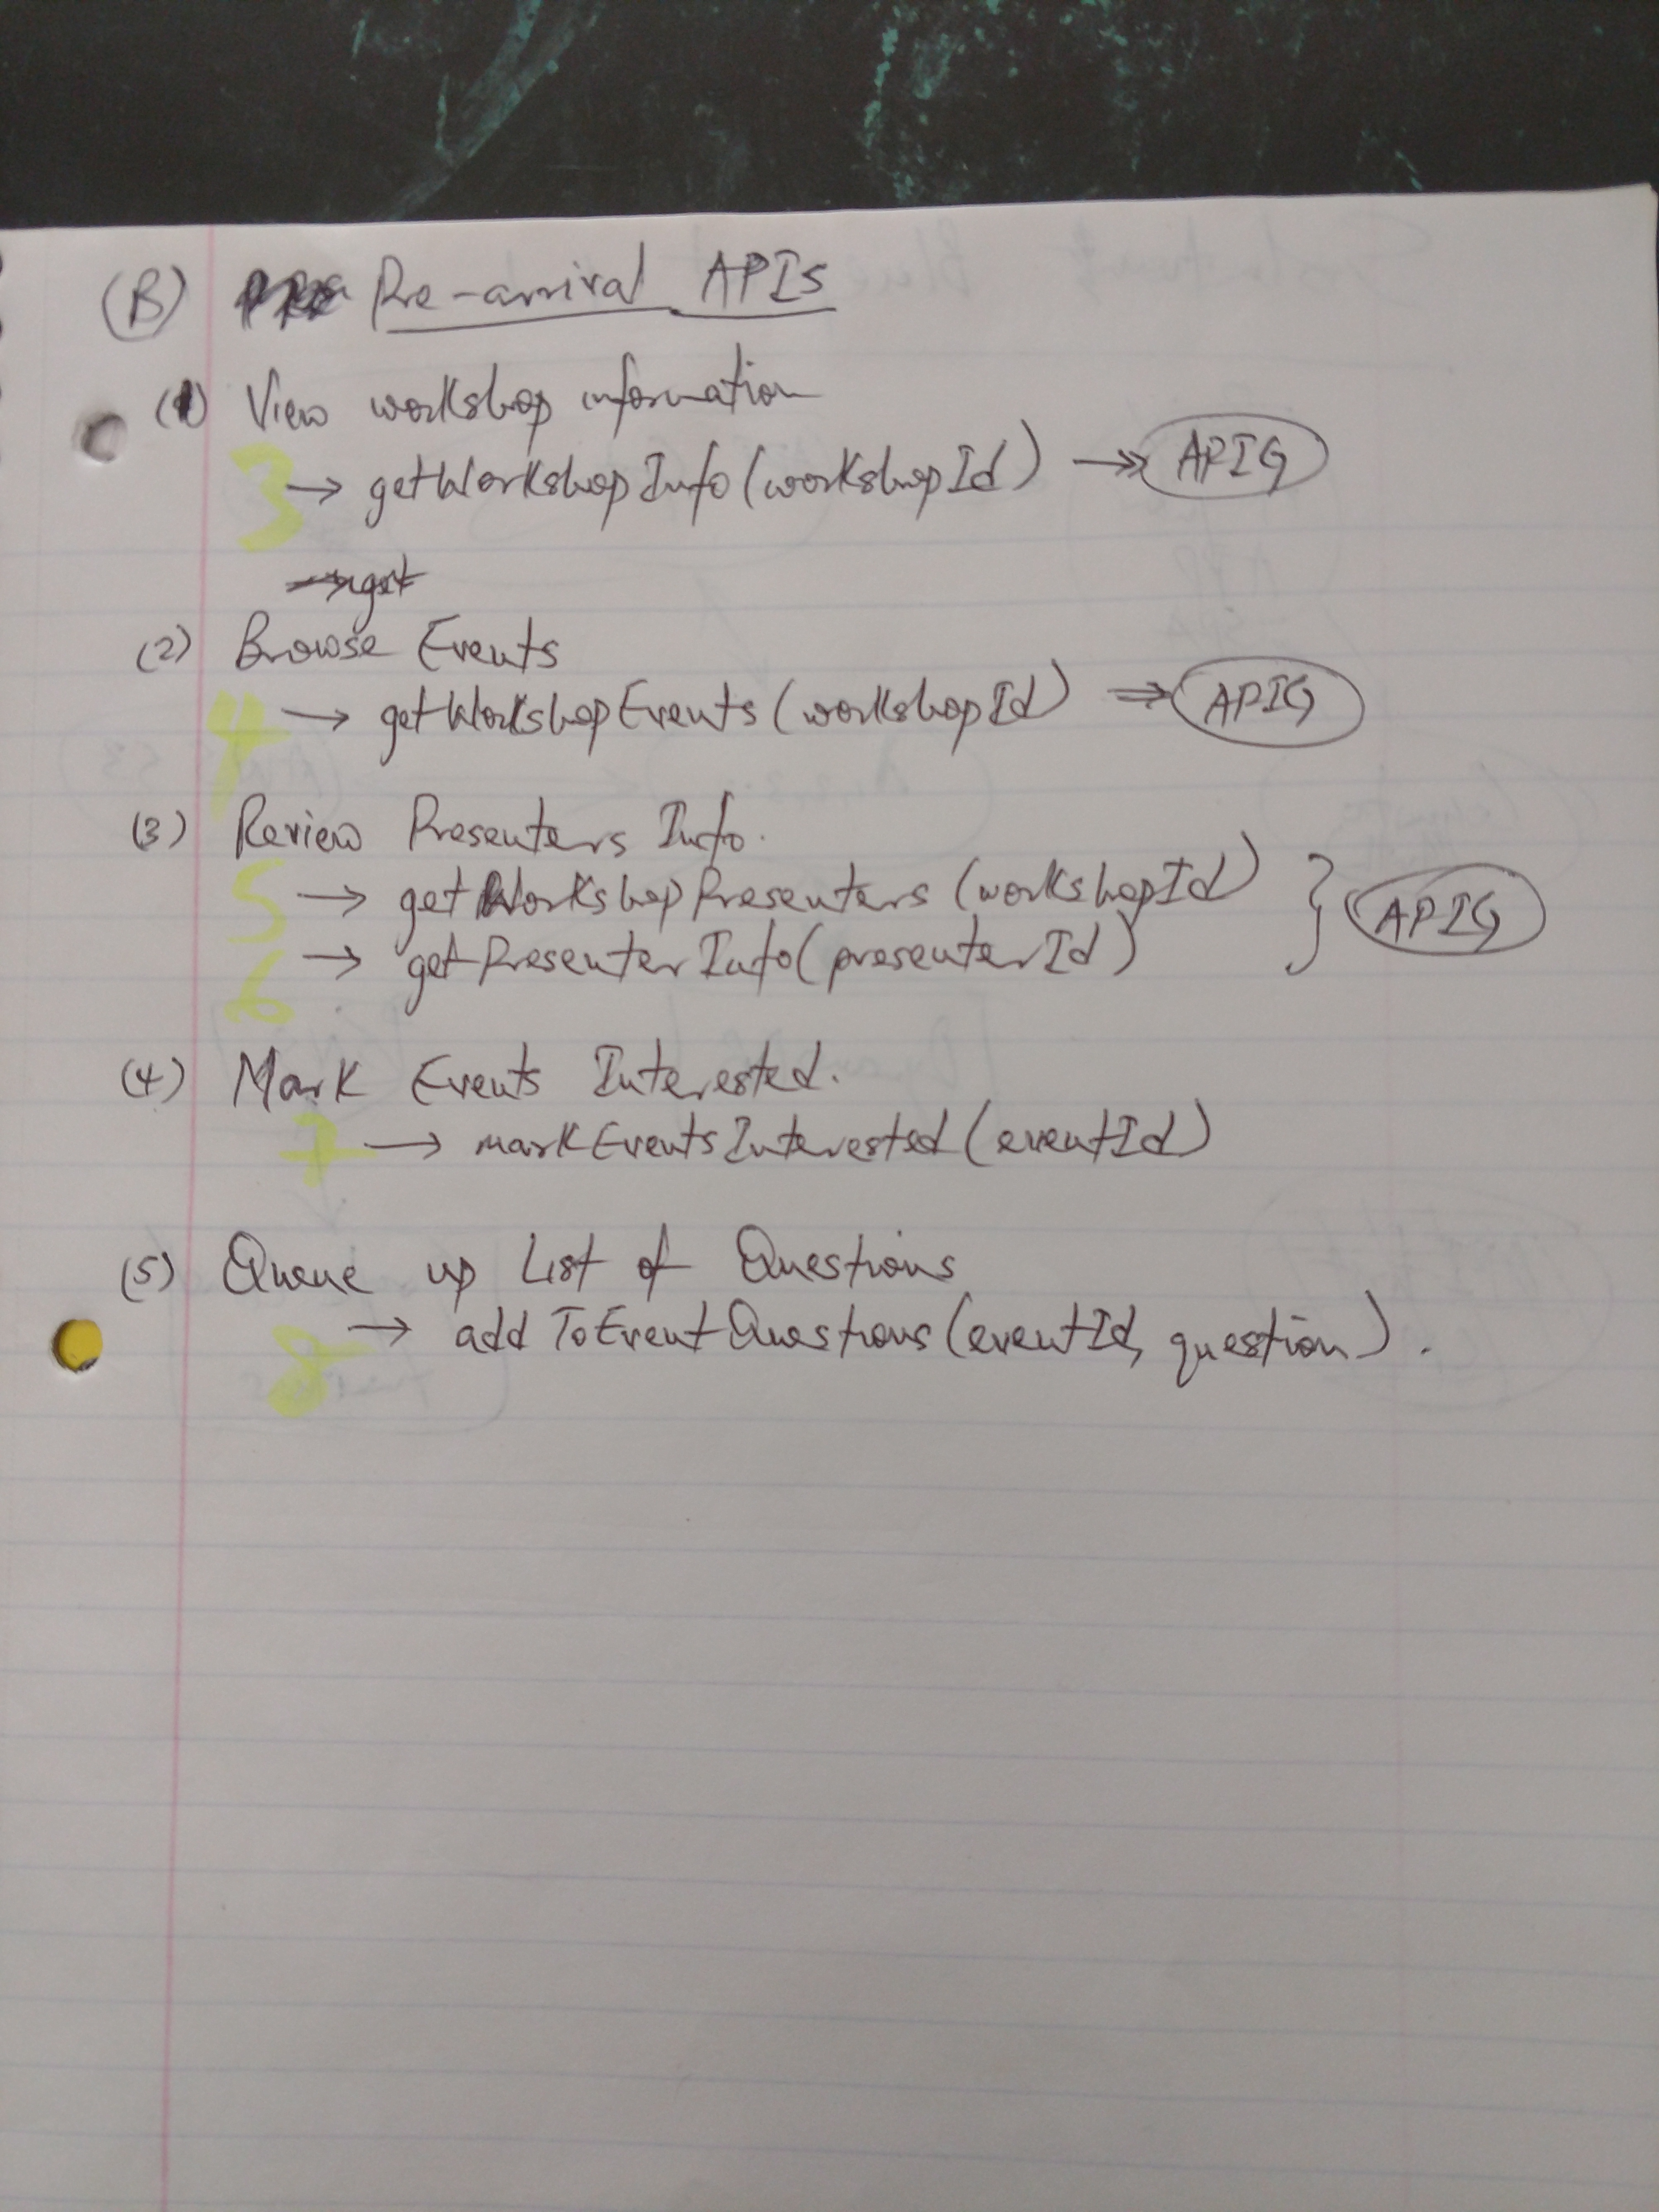 (B) Pre-arrival APIs
(1) View workshop information
3 → getWorkshopInfo(workshopId) → APIG
→ get
(2) Browse Events
4 → getWorkshopEvents(workshopId) ⇒ APIG
(3) Review Presenters Info.
5 → getWorkshopPresenters(workshopId) } APIG
6 → getPresenterInfo(presenterId)
(4) Mark Events Interested.
7 → markEventsInterested(eventId)
(5) Queue up List of Questions
8 → addToEventQuestions(eventId, question).